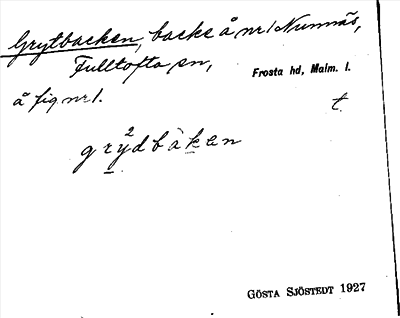 Grytbacken, backe å nr 1 Nunnäs,
Fulltofta sn,
Frosta hd, Malm. l.
å fig nr 1.
t
gry²dbàken
GÖSTA SJÖSTEDT 1927